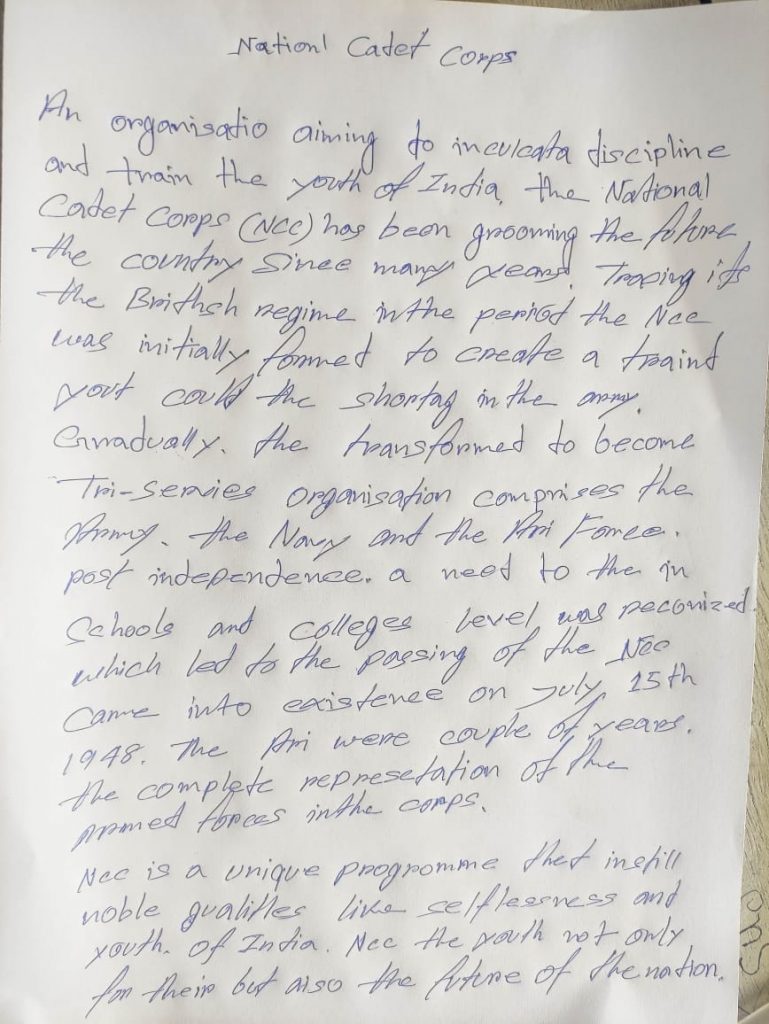 Nationl Cadet Corps
An organisatio aiming to inculcata discipline
and train the youth of India, the National
Cadet Corps (NCC) has been grooming the future
the country Since many years. Tracing its
the Brithsh regime inthe period the Ncc
was initially formed to create a traind
yout could the shortag in the army.
Grradually. the transformed to become
Tri-servies organisation comprises the
Army. the Navy and the Ari Force.
post independence. a need to the in
Schools and colleges level was reconized.
which led to the passing of the Ncc
came into existence on July, 15th
1948. The Ari were couple of years.
the complete represetation of the
Armed forces inthe corps.
Ncc is a unique programme thet instill
noble qualities like selflessness and
youth. of India. Ncc the youth not only
for their but also the future of the nation.